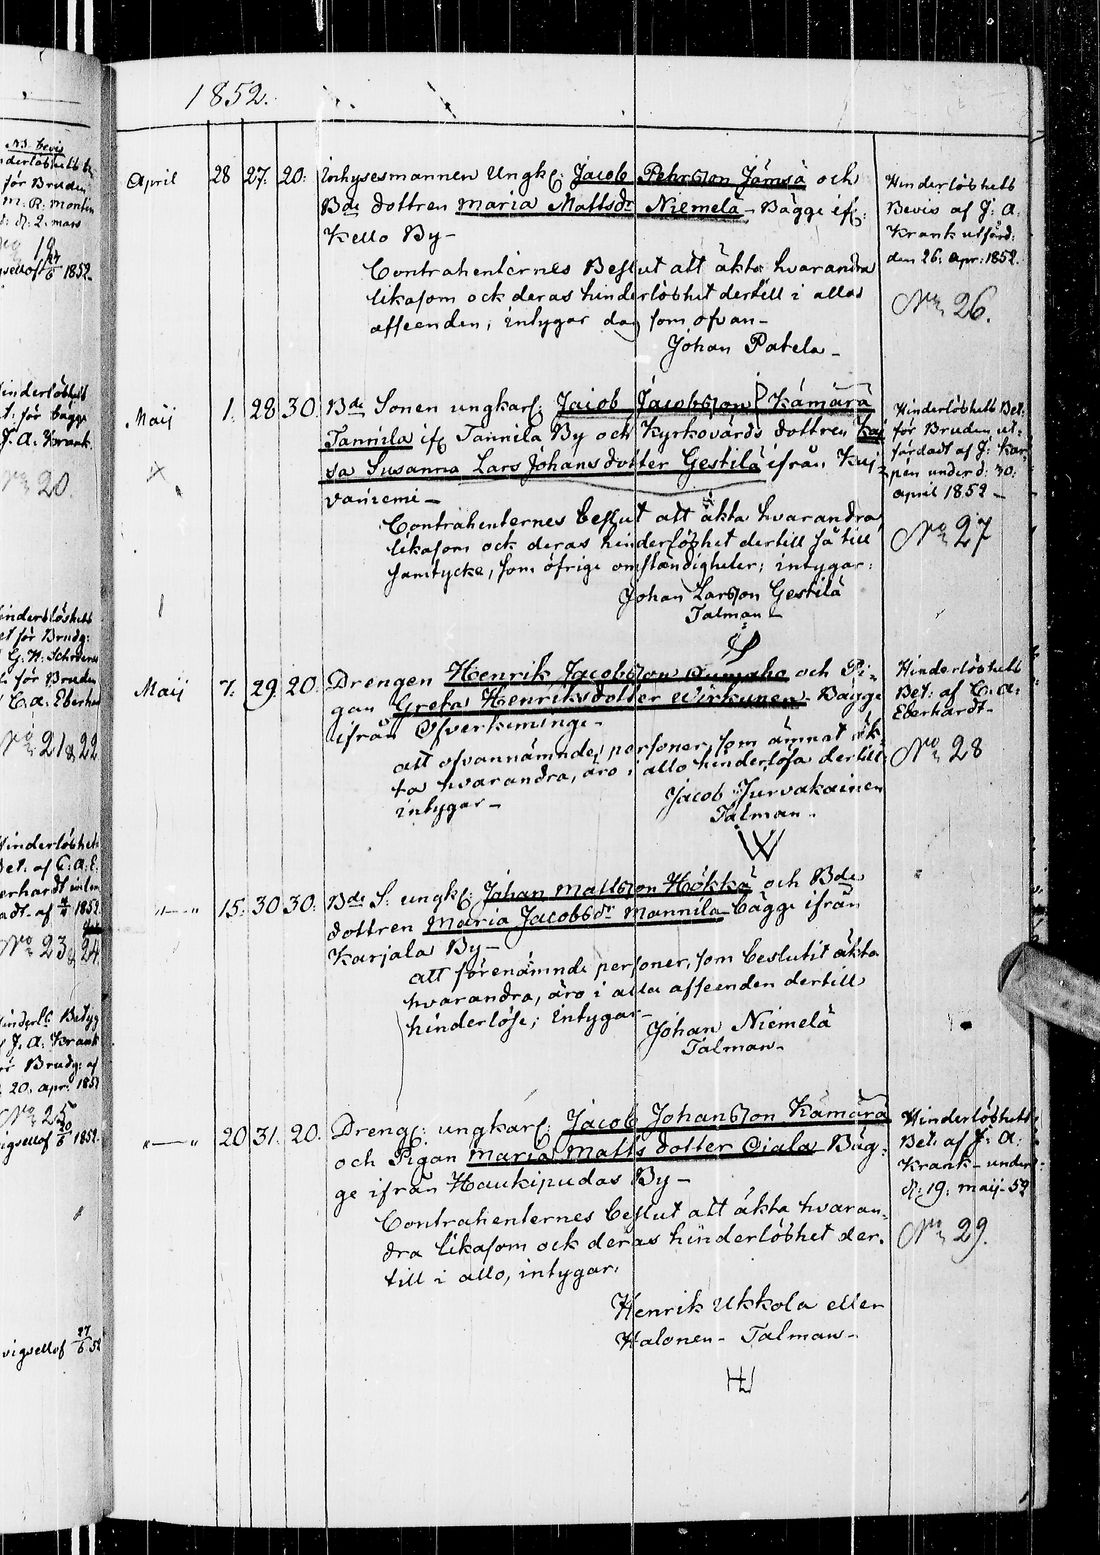 1852.
April 28 27. 20. Inhysesmannen Ungk: Jacob Pehrsson Jämsä och
Bde dottren Maria Mattsdr Niemelä - Bägge ifr:
Kello By -
Contrahenternes Beslut att äkta hvarandra
likasom ock deras hinderlöshet dertill i allo
afseenden, intygar dag som ofvan -
Johan Patela -
Hinderlöshets
Bevis af J: A:
Krank utfärd:
den 26. Apr: 1852.
No 26.
Maij 1. 28 30 Bde Sonen ungkarl: Jacob Jacobsson Kämärä
Tannila ifr Tannila By och Kyrkovärds dottren Kaj
sa Susanna Lars Johansdotter Gestilä ifrån Kuj-
vaniemi -
Contrahenternes beslut att äkta hvarandra,
likasom ock deras hinderlöshet dertill så till
samtycke, som öfrige omständigheter; intygar:
Johan Larsson Gestilä
Talman -
Hinderlöshets Bet:
för Bruden ut-
färdadt af J: Kar-
pen under d: 30:
april 1852 -
No 27
Maij 7. 29. 20. Drengen Henrik Jacobsson och Pi-
gan Greta Henriksdotter Wirkunen - Bägge
ifrån Öfverkiminge -
att ofvannämnde personer, som ämnat äk-
ta hvarandra, äro i allo hinderlösa dertill,
intygar -
Jacob Jurvakainen
Talman -
Hinderlöshets
Bet: af C: A:
Eberhardt -
No 28
" — " 15. 30 30. Bde S: ungk: Johan Mattsson Hökkä och Bde
dottren Maria Jacobsdr Mannila bägge ifrån
Karjala By -
att förenämnde personer, som beslutit äkta
hvarandra, äro i alla afseenden dertill
hinderlöse; intygar -
Johan Niemelä
Talman -
" — " 20 31. 20. Dreng: ungkarl: Jacob Johansson Kämärä
och Pigan Maria Matts dotter Ojala Bäg-
ge ifrån Haukipudas By -
Contrahenternes beslut att äkta hvaran-
dra likasom ock deras hinderlöshet der-
till i allo, intygar:
Henrik Ukkola eller
Halonen - Talman -
Hinderlöshets
Bet: af J: A:
Krank - under
d: 19: maij - 52
No 29.